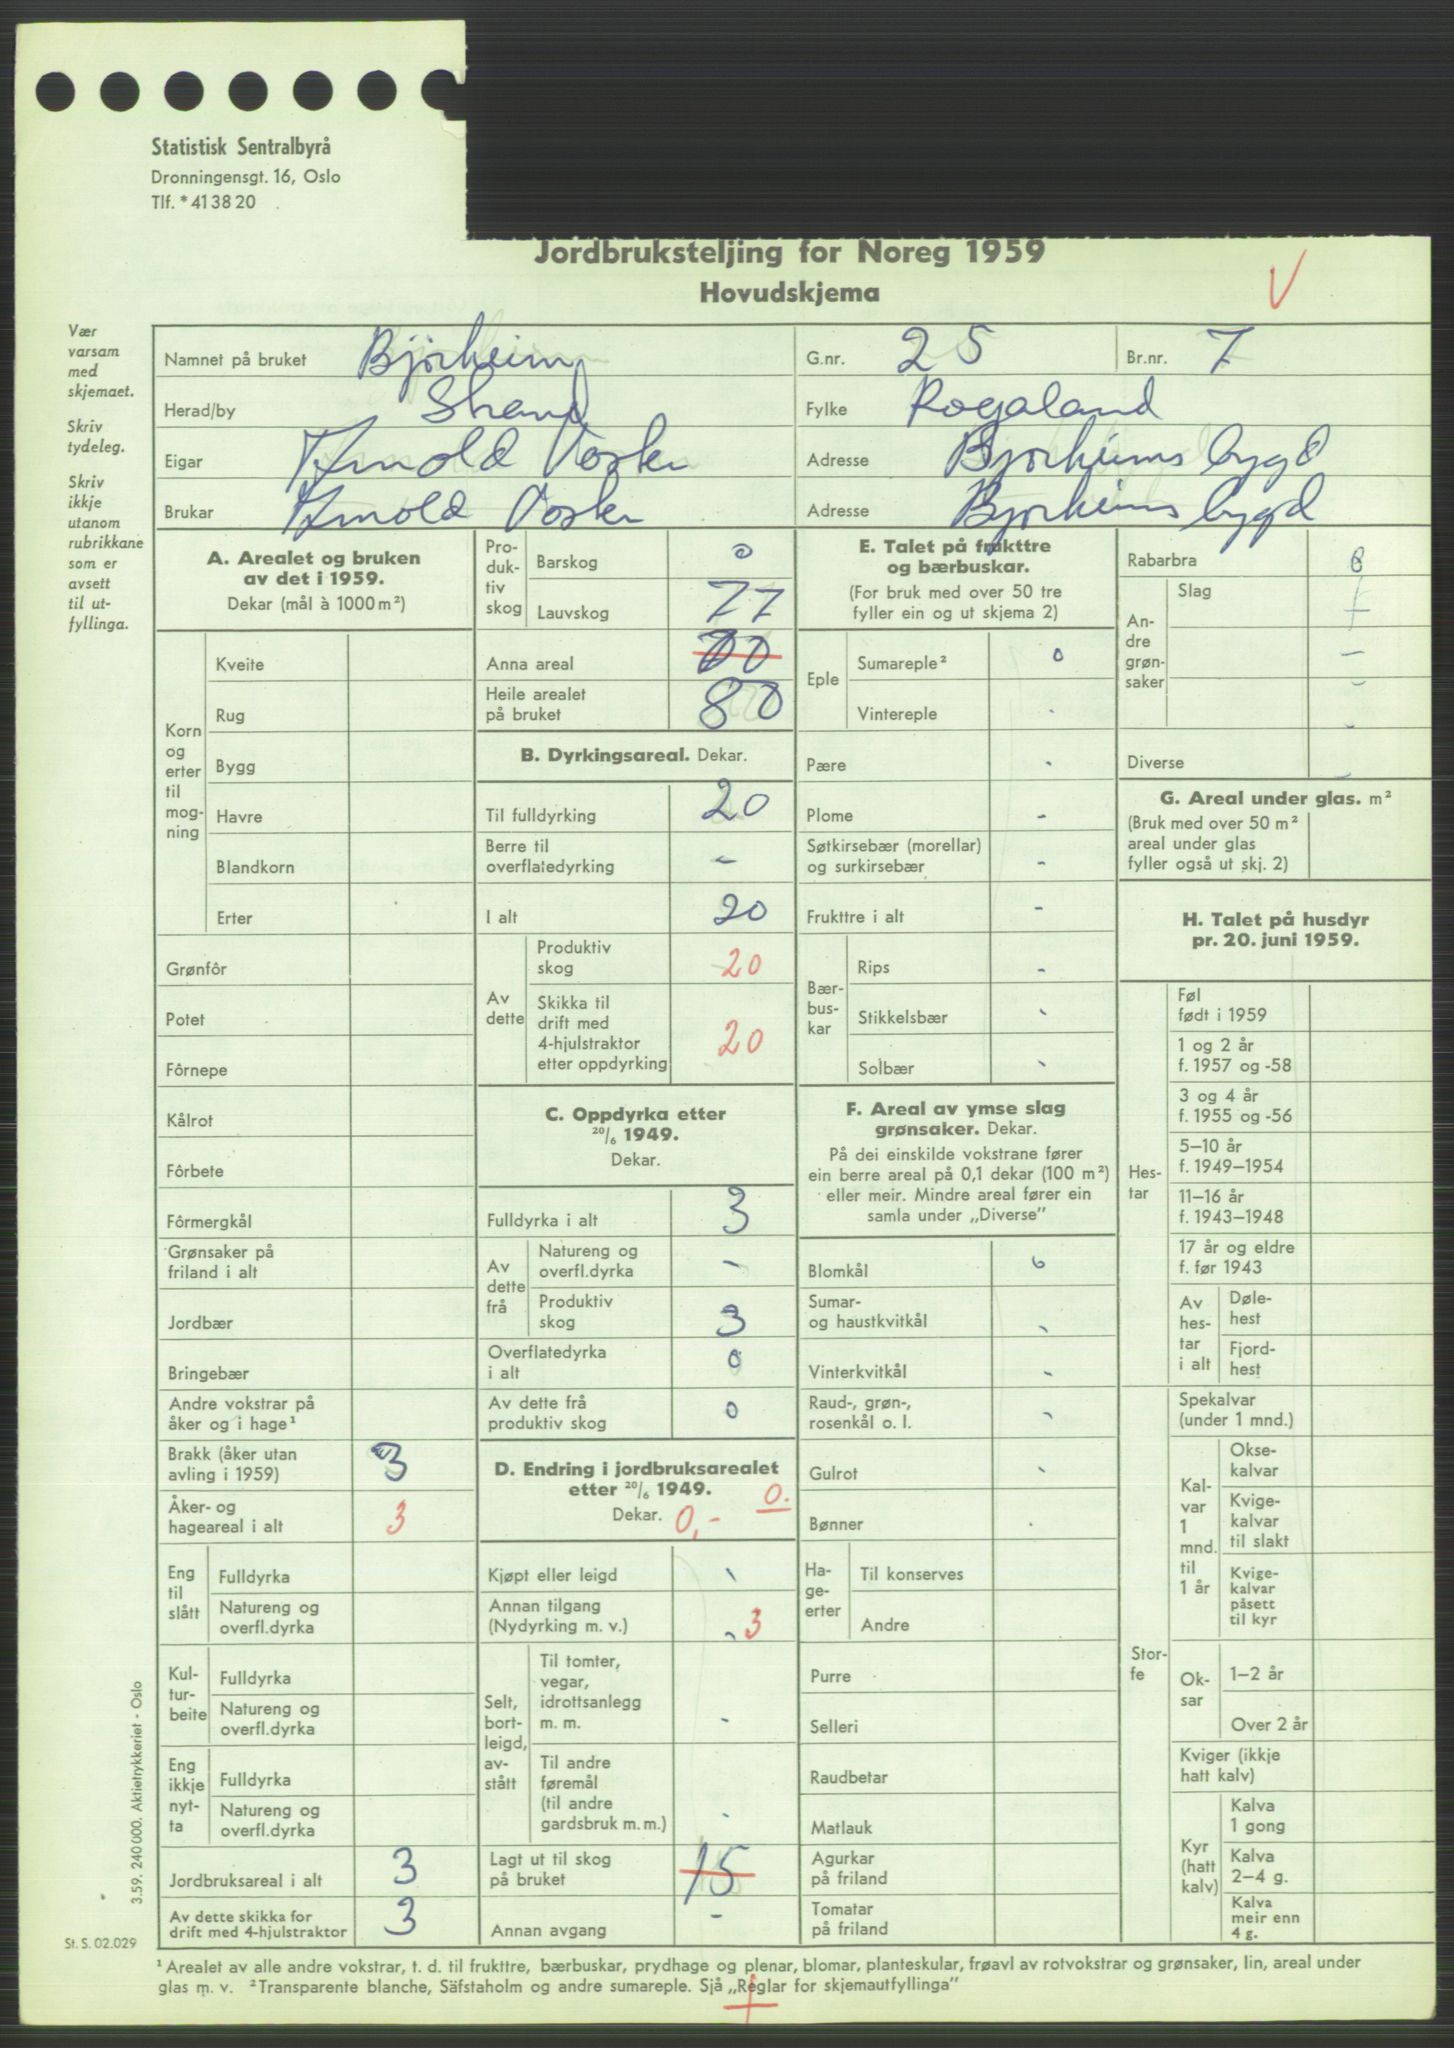 Statistisk Sentralbyrå
Dronningensgt. 16, Oslo
Tlf. * 41 38 20
Jordbruksteljing for Noreg 1959
Hovudskjema
V
Vær
varsam
med
skjemaet.
Skriv
tydeleg.
Skriv
ikkje
utanom
rubrikkane
som er
avsett
til ut-
fyllinga.
Namnet på bruket Bjørheim G.nr. 25 Br.nr. 7
Herad/by Strand Fylke Rogaland
Eigar Arnold Adresse Bjørheimsbygd
Brukar Arnold Adresse Bjørheimsbygd
A. Arealet og bruken
av det i 1959.
Dekar (mål à 1000 m²)
Korn
og
erter
til
mog-
ning
Kveite
Rug
Bygg
Havre
Blandkorn
Erter
Grønfôr
Potet
Fôrnepe
Kålrot
Fôrbete
Fôrmergkål
Grønsaker på
friland i alt
Jordbær
Bringebær
Andre vokstrar på
åker og i hage¹
Brakk (åker utan
avling i 1959) 3
Åker- og
hageareal i alt 3
Eng
til
slått
Fulldyrka
Natureng og
overfl.dyrka
Kul-
tur-
beite
Fulldyrka
Natureng og
overfl.dyrka
Eng
ikkje
nyt-
ta
Fulldyrka
Natureng og
overfl.dyrka
Jordbruksareal i alt 3
Av dette skikka for
drift med 4-hjulstraktor 3
Pro-
duk-
tiv
skog
Barskog 0
Lauvskog 77
Anna areal
Heile arealet
på bruket 80
B. Dyrkingsareal. Dekar.
Til fulldyrking 20
Berre til
overflatedyrking -
I alt 20
Av
dette
Produktiv
skog 20
Skikka til
drift med
4-hjulstraktor
etter oppdyrking 20
C. Oppdyrka etter
20/6 1949.
Dekar.
Fulldyrka i alt 3
Av
dette
frå
Natureng og
overfl.dyrka -
Produktiv
skog 3
Overflatedyrka
i alt 0
Av dette frå
produktiv skog 0
D. Endring i jordbruksarealet
etter 20/6 1949. 0.
Dekar. 0,-
Kjøpt eller leigd -
Annan tilgang
(Nydyrking m. v.) - 3
Selt,
bort-
leigd,
av-
stått
Til tomter,
vegar,
idrottsanlegg
m. m. -
Til andre
føremål
(til andre
gardsbruk m. m.) -
Lagt ut til skog
på bruket 15
Annan avgang -
E. Talet på frukttre
og bærbuskar.
(For bruk med over 50 tre
fyller ein og ut skjema 2)
Eple
Sumareple² 0
Vintereple -
Pære -
Plome -
Søtkirsebær (morellar)
og surkirsebær -
Frukttre i alt -
Bær-
bus-
kar
Rips -
Stikkelsbær -
Solbær -
F. Areal av ymse slag
grønsaker. Dekar.
På dei einskilde vokstrane fører
ein berre areal på 0,1 dekar (100 m²)
eller meir. Mindre areal fører ein
samla under „Diverse”
Blomkål 0
Sumar-
og haustkvitkål -
Vinterkvitkål -
Raud-, grøn-,
rosenkål o. l. -
Gulrot -
Bønner -
Ha-
ge-
erter
Til konserves
Andre
Purre
Selleri
Raudbetar
Matlauk
Agurkar
på friland
Tomatar
på friland
Rabarbra 0
An-
dre
grøn-
saker
Slag
-
-
-
Diverse -
G. Areal under glas. m²
(Bruk med over 50 m²
areal under glas
fyller også ut skj. 2)
H. Talet på husdyr
pr. 20. juni 1959.
Hes-
tar
Føl
født i 1959
1 og 2 år
f. 1957 og -58
3 og 4 år
f. 1955 og -56
5–10 år
f. 1949–1954
11–16 år
f. 1943–1948
17 år og eldre
f. før 1943
Av
hes-
tar
i alt
Døle-
hest
Fjord-
hest
Stor-
fe
Spekalvar
(under 1 mnd.)
Kal-
var
1
mnd.
til
1 år
Okse-
kalvar
Kvige-
kalvar
til slakt
Kvige-
kalvar
påsett
til kyr
Ok-
sar
1–2 år
Over 2 år
Kviger (ikkje
hatt kalv)
Kyr
(hatt
kalv)
Kalva
1 gong
Kalva
2–4 g.
Kalva
meir enn
4 g.
3.59. 240 000. Aktietrykkeriet - Oslo
St. S. 02.029
¹ Arealet av alle andre vokstrar, t. d. til frukttre, bærbuskar, prydhage og plenar, blomar, planteskular, frøavl av rotvokstrar og grønsaker, lin, areal under
glas m. v. ² Transparente blanche, Säfstaholm og andre sumareple. Sjå „Reglar for skjemautfyllinga”